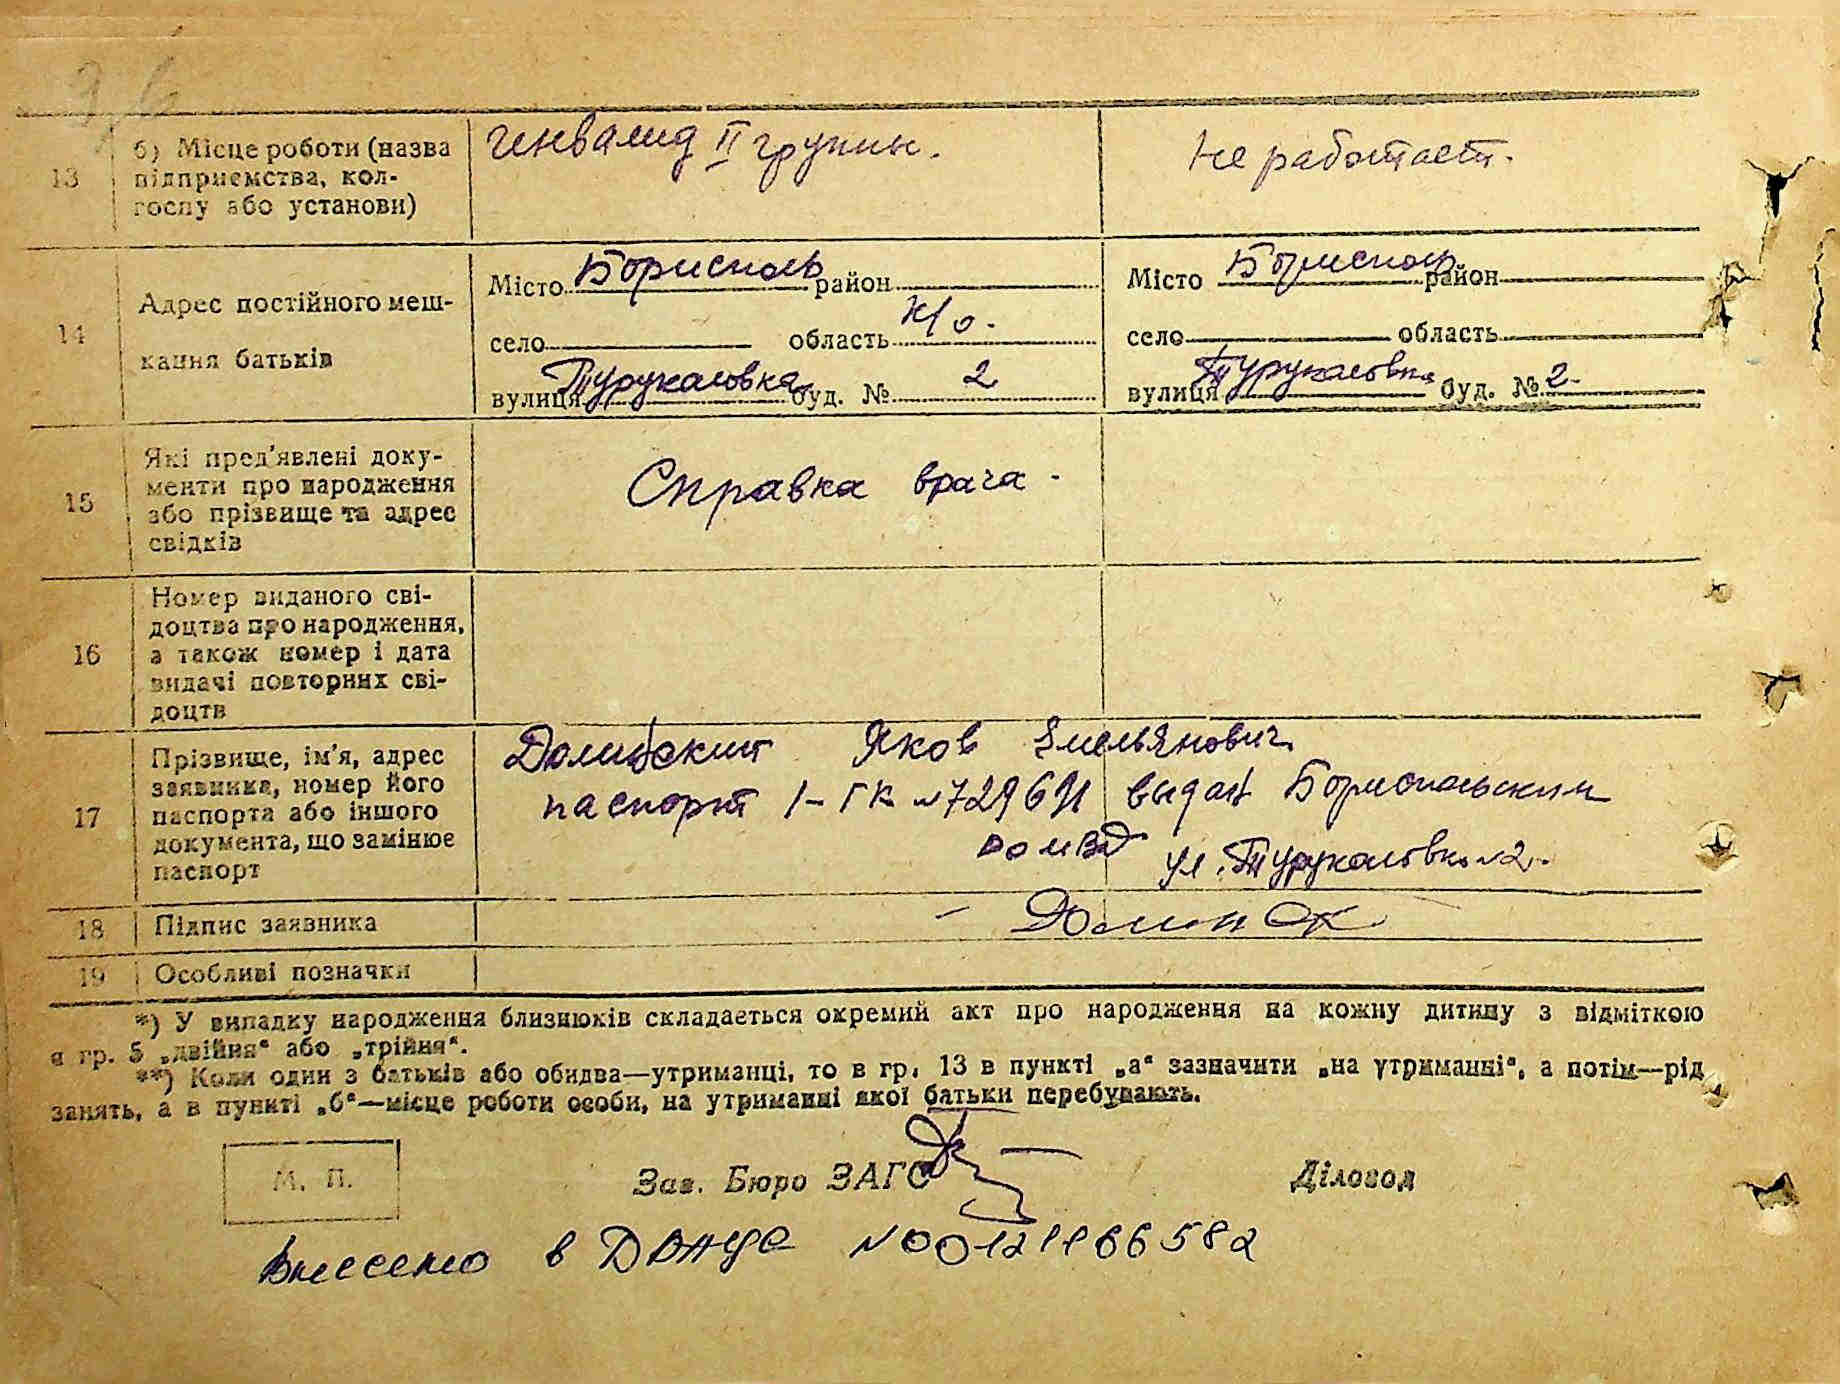 13 б) Місце роботи (назва підприємства, кол-госпу або установи)
инвалид II группы.
не работает.
14 Адрес постійного меш-кання батьків
Місто Борисполь район
село область К/о.
вулиця Турукаловка буд. № 2
Місто Борисполь район
село область
вулиця Турукаловка буд. № 2.
15 Які пред'явлені доку-менти про народження або прізвище та адрес свідків
Справка врача.
16 Номер виданого сві-доцтва про народження, а також номер і дата видачі повторних сві-доцтв
17 Прізвище, ім'я, адрес заявника, номер його паспорта або іншого документа, що замінює паспорт
Яков Емельянович
паспорт выдан Бориспольским
РОМВД ул. Турукаловка №2.
18 Підпис заявника
19 Особливі позначки
*) У випадку народження близнюків складається окремий акт про народження на кожну дитину з відміткою
в гр. 5 „двійня“ або „трійня“.
**) Коли один з батьків або обидва—утриманці, то в гр. 13 в пункті „а“ зазначити „на утриманні“, а потім—рід
занять, а в пункті „б“—місце роботи особи, на утриманні якої батьки перебувають.
М. П.
Зав. Бюро ЗАГС
Діловод
Внесено в ДРАЦС №00121166582